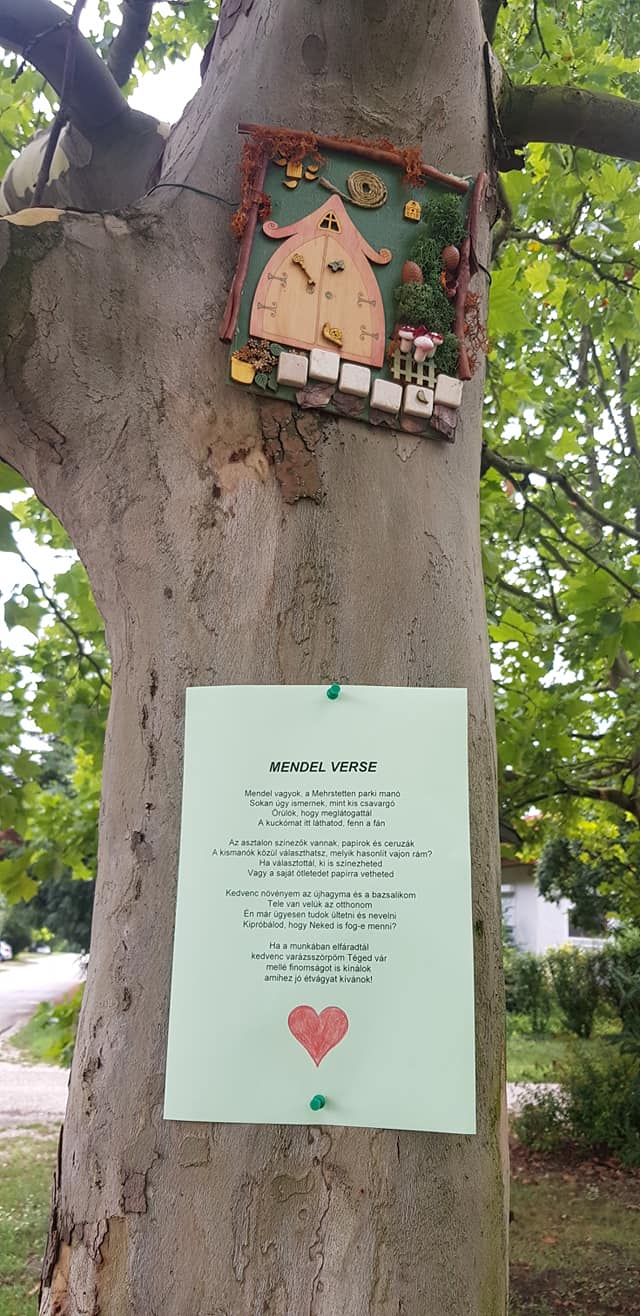 MENDEL VERSE
Mendel vagyok, a Mehrstetten parki manó
Sokan úgy ismernek, mint kis csavargó
Örülök, hogy meglátogattál
A kuckómat itt láthatod, fenn a fán
Az asztalon színezők vannak, papírok és ceruzák
A kismanók közül választhatsz, melyik hasonlít vajon rám?
Ha választottál, ki is színezheted
Vagy a saját ötletedet papírra vetheted
Kedvenc növényem az újhagyma és a bazsalikom
Tele van velük az otthonom
Én már ügyesen tudok ültetni és nevelni
Kipróbálod, hogy Neked is fog-e menni?
Ha a munkában elfáradtál
kedvenc varázsszörpöm Téged vár
mellé finomságot is kínálok
amihez jó étvágyat kívánok!